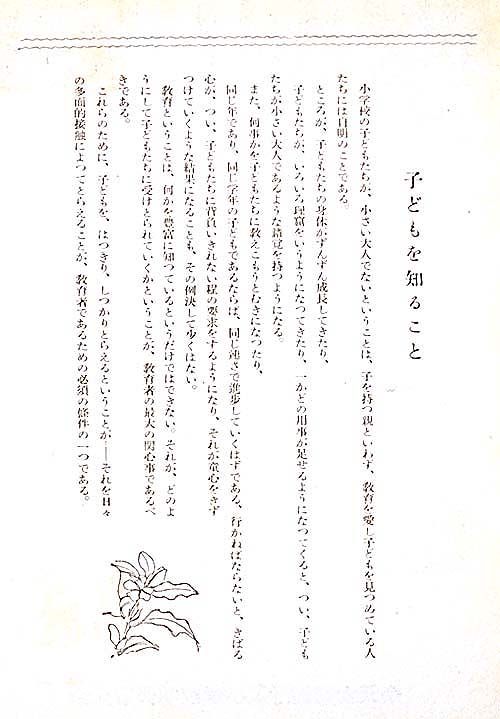 子どもを知ること
小学校の子どもたちが、小さい大人でないということは、子を持つ親といわず、教育を愛し子どもを見つめている人
たちには自明のことである。
ところが、子どもたちの身体がずんずん成長してきたり、
子どもたちが、いろいろ理窟をいうようになつてきたり、一かどの用事が足せるようになつてくると、つい、子ども
たちが小さい大人であるような錯覚を持つようになる。
また、何事かを子どもたちに教えこもうとむきになつたり、
同じ年であり、同じ学年の子どもであるならば、同じ速さで進歩していくはずである、行かねばならないと、きばる
心が、つい、子どもたちに背負いきれない程の要求をするようになり、それが童心をきず
つけていくような結果になることも、その例決して少くはない。
教育ということは、何かを豊富に知つているというだけではできない。それが、どのよ
うにして子どもたちに受けとられていくかということが、教育者の最大の関心事であるべ
きである。
これらのために、子どもを、はつきり、しつかりとらえるということが――それを日々
の多面的接触によつてとらえることが、教育者であるための必須の條件の一つである。